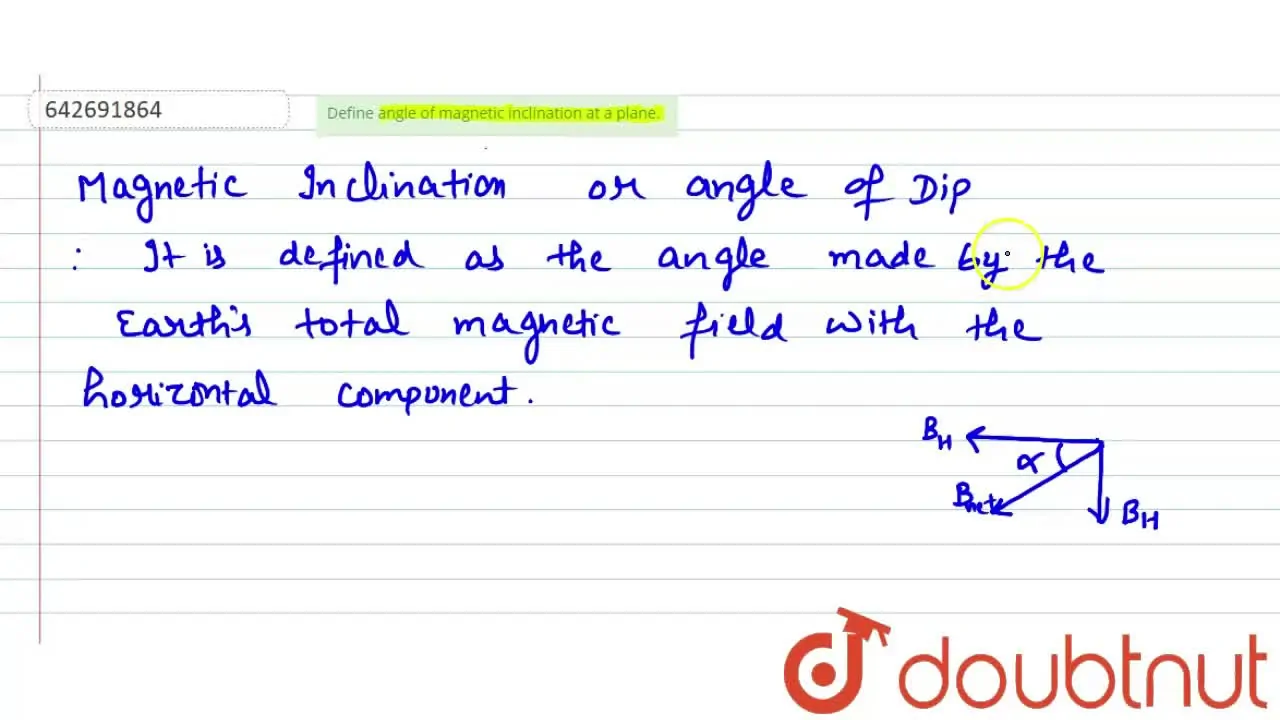 642691864
Define angle of magnetic inclination at a plane.
Magnetic Inclination or angle of Dip
: It is defined as the angle made by the
Earth's total magnetic field with the
horizontal component.
BH
α
Bnet
BH
doubtnut